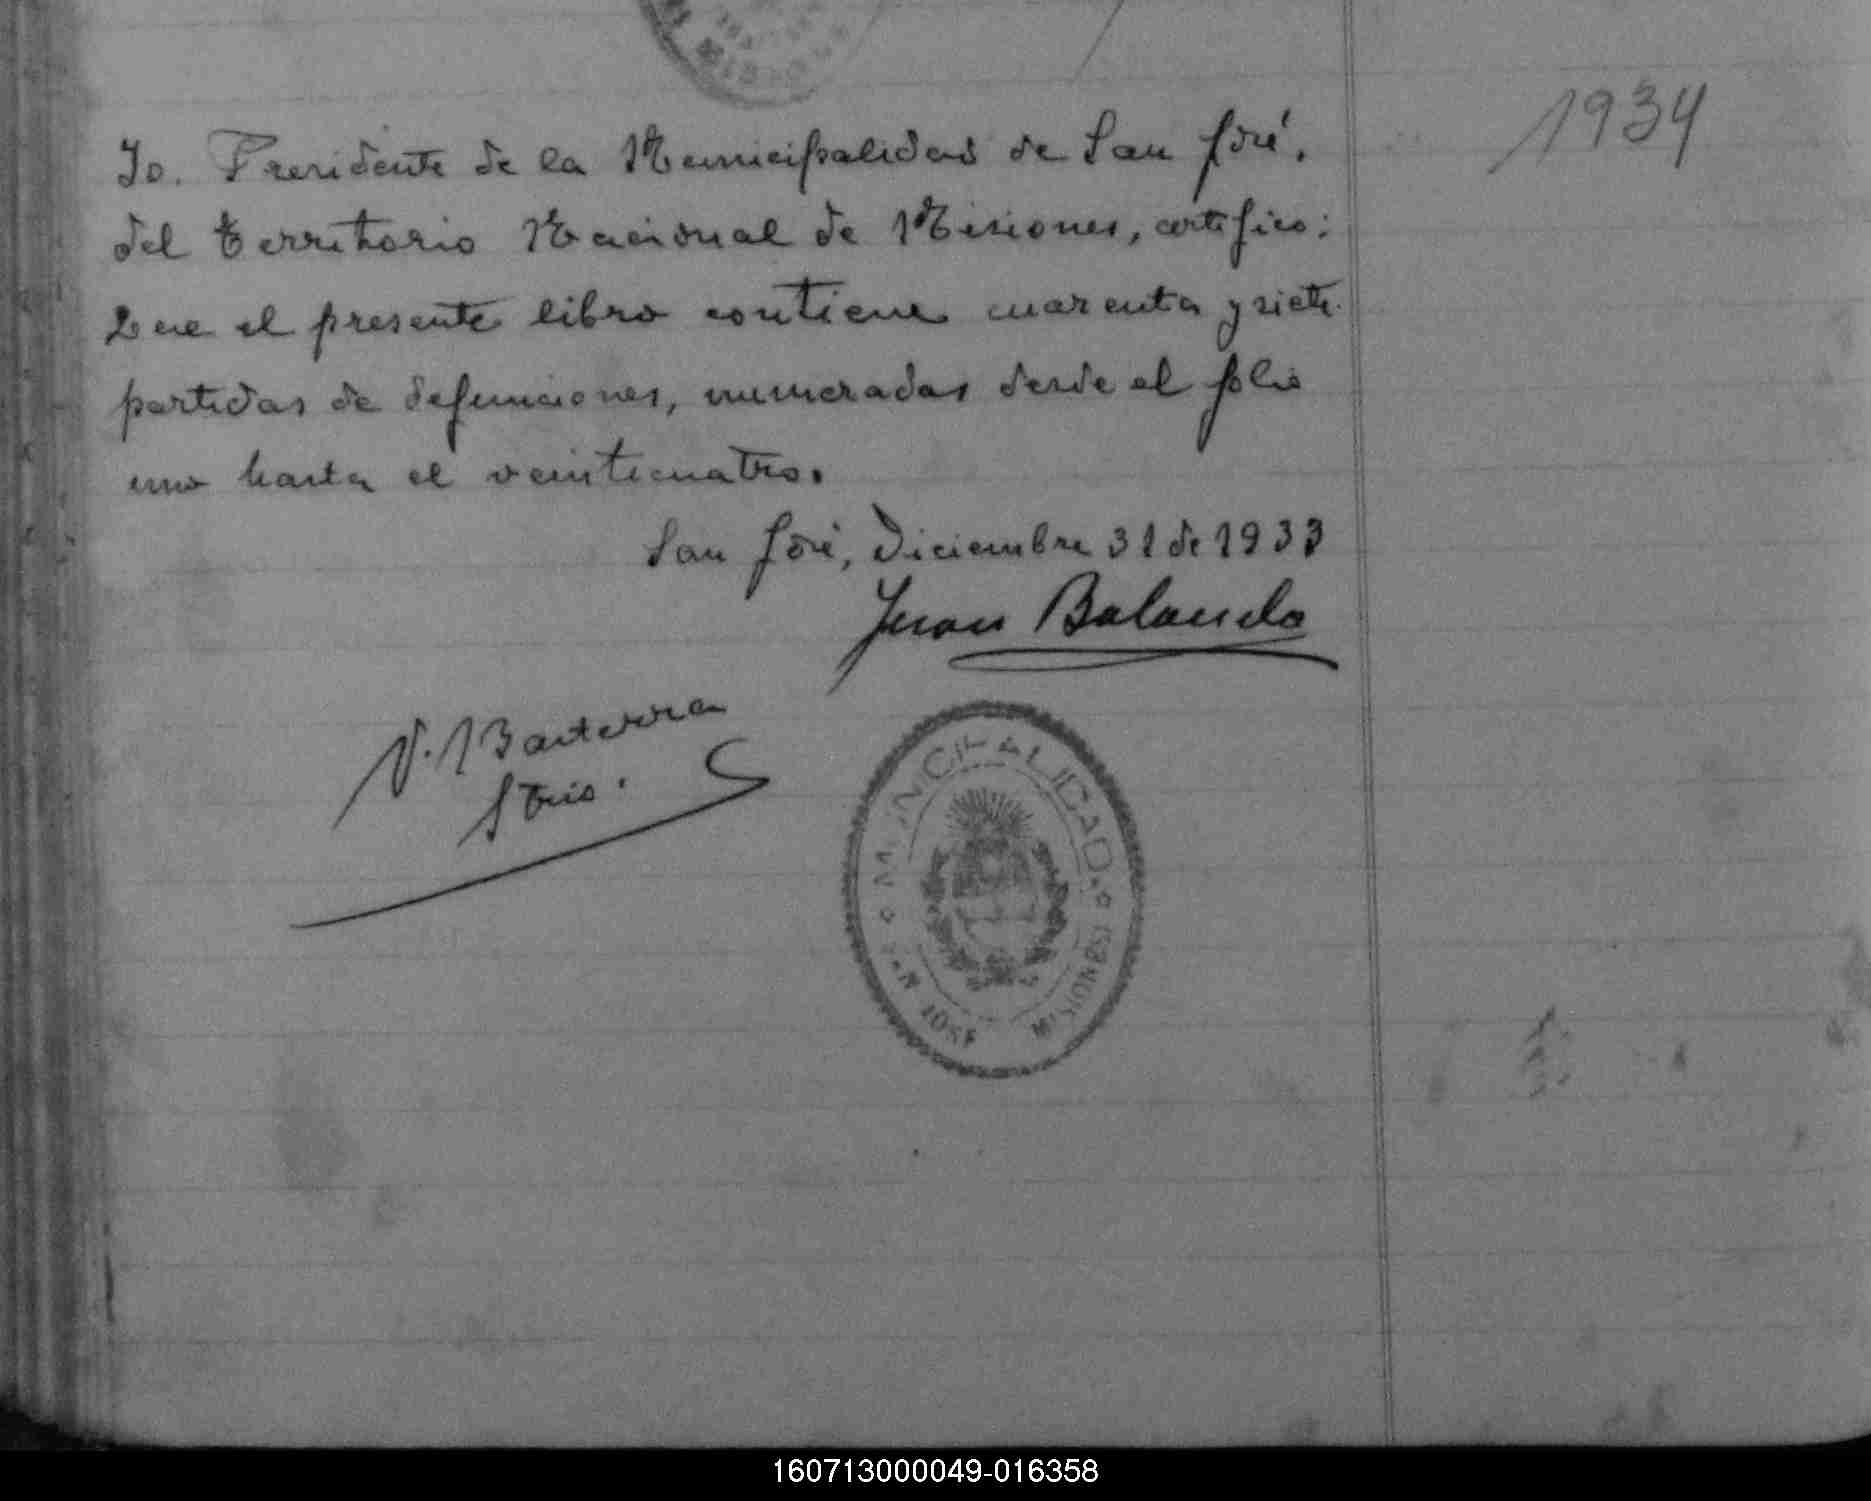 1934
Yo. Presidente de la Municipalidad de San José.
del territorio Nacional de Misiones, certifico:
Que el presente libro contiene cuarenta y siete
partidas de defunciones, numeradas desde el folio
uno hasta el veinticuatro.
San José, Diciembre 31 de 1933
Juan Balanda
V. Basterra
Strio.
MUNICIPALIDAD
SAN JOSE MISIONES
160713000049-016358